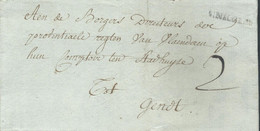 Aen de Borgers Directeurs der
proventiaele regien van Vlaenderen op
hun Comptoir ten Stadhuyse
2
Tot
Gendt